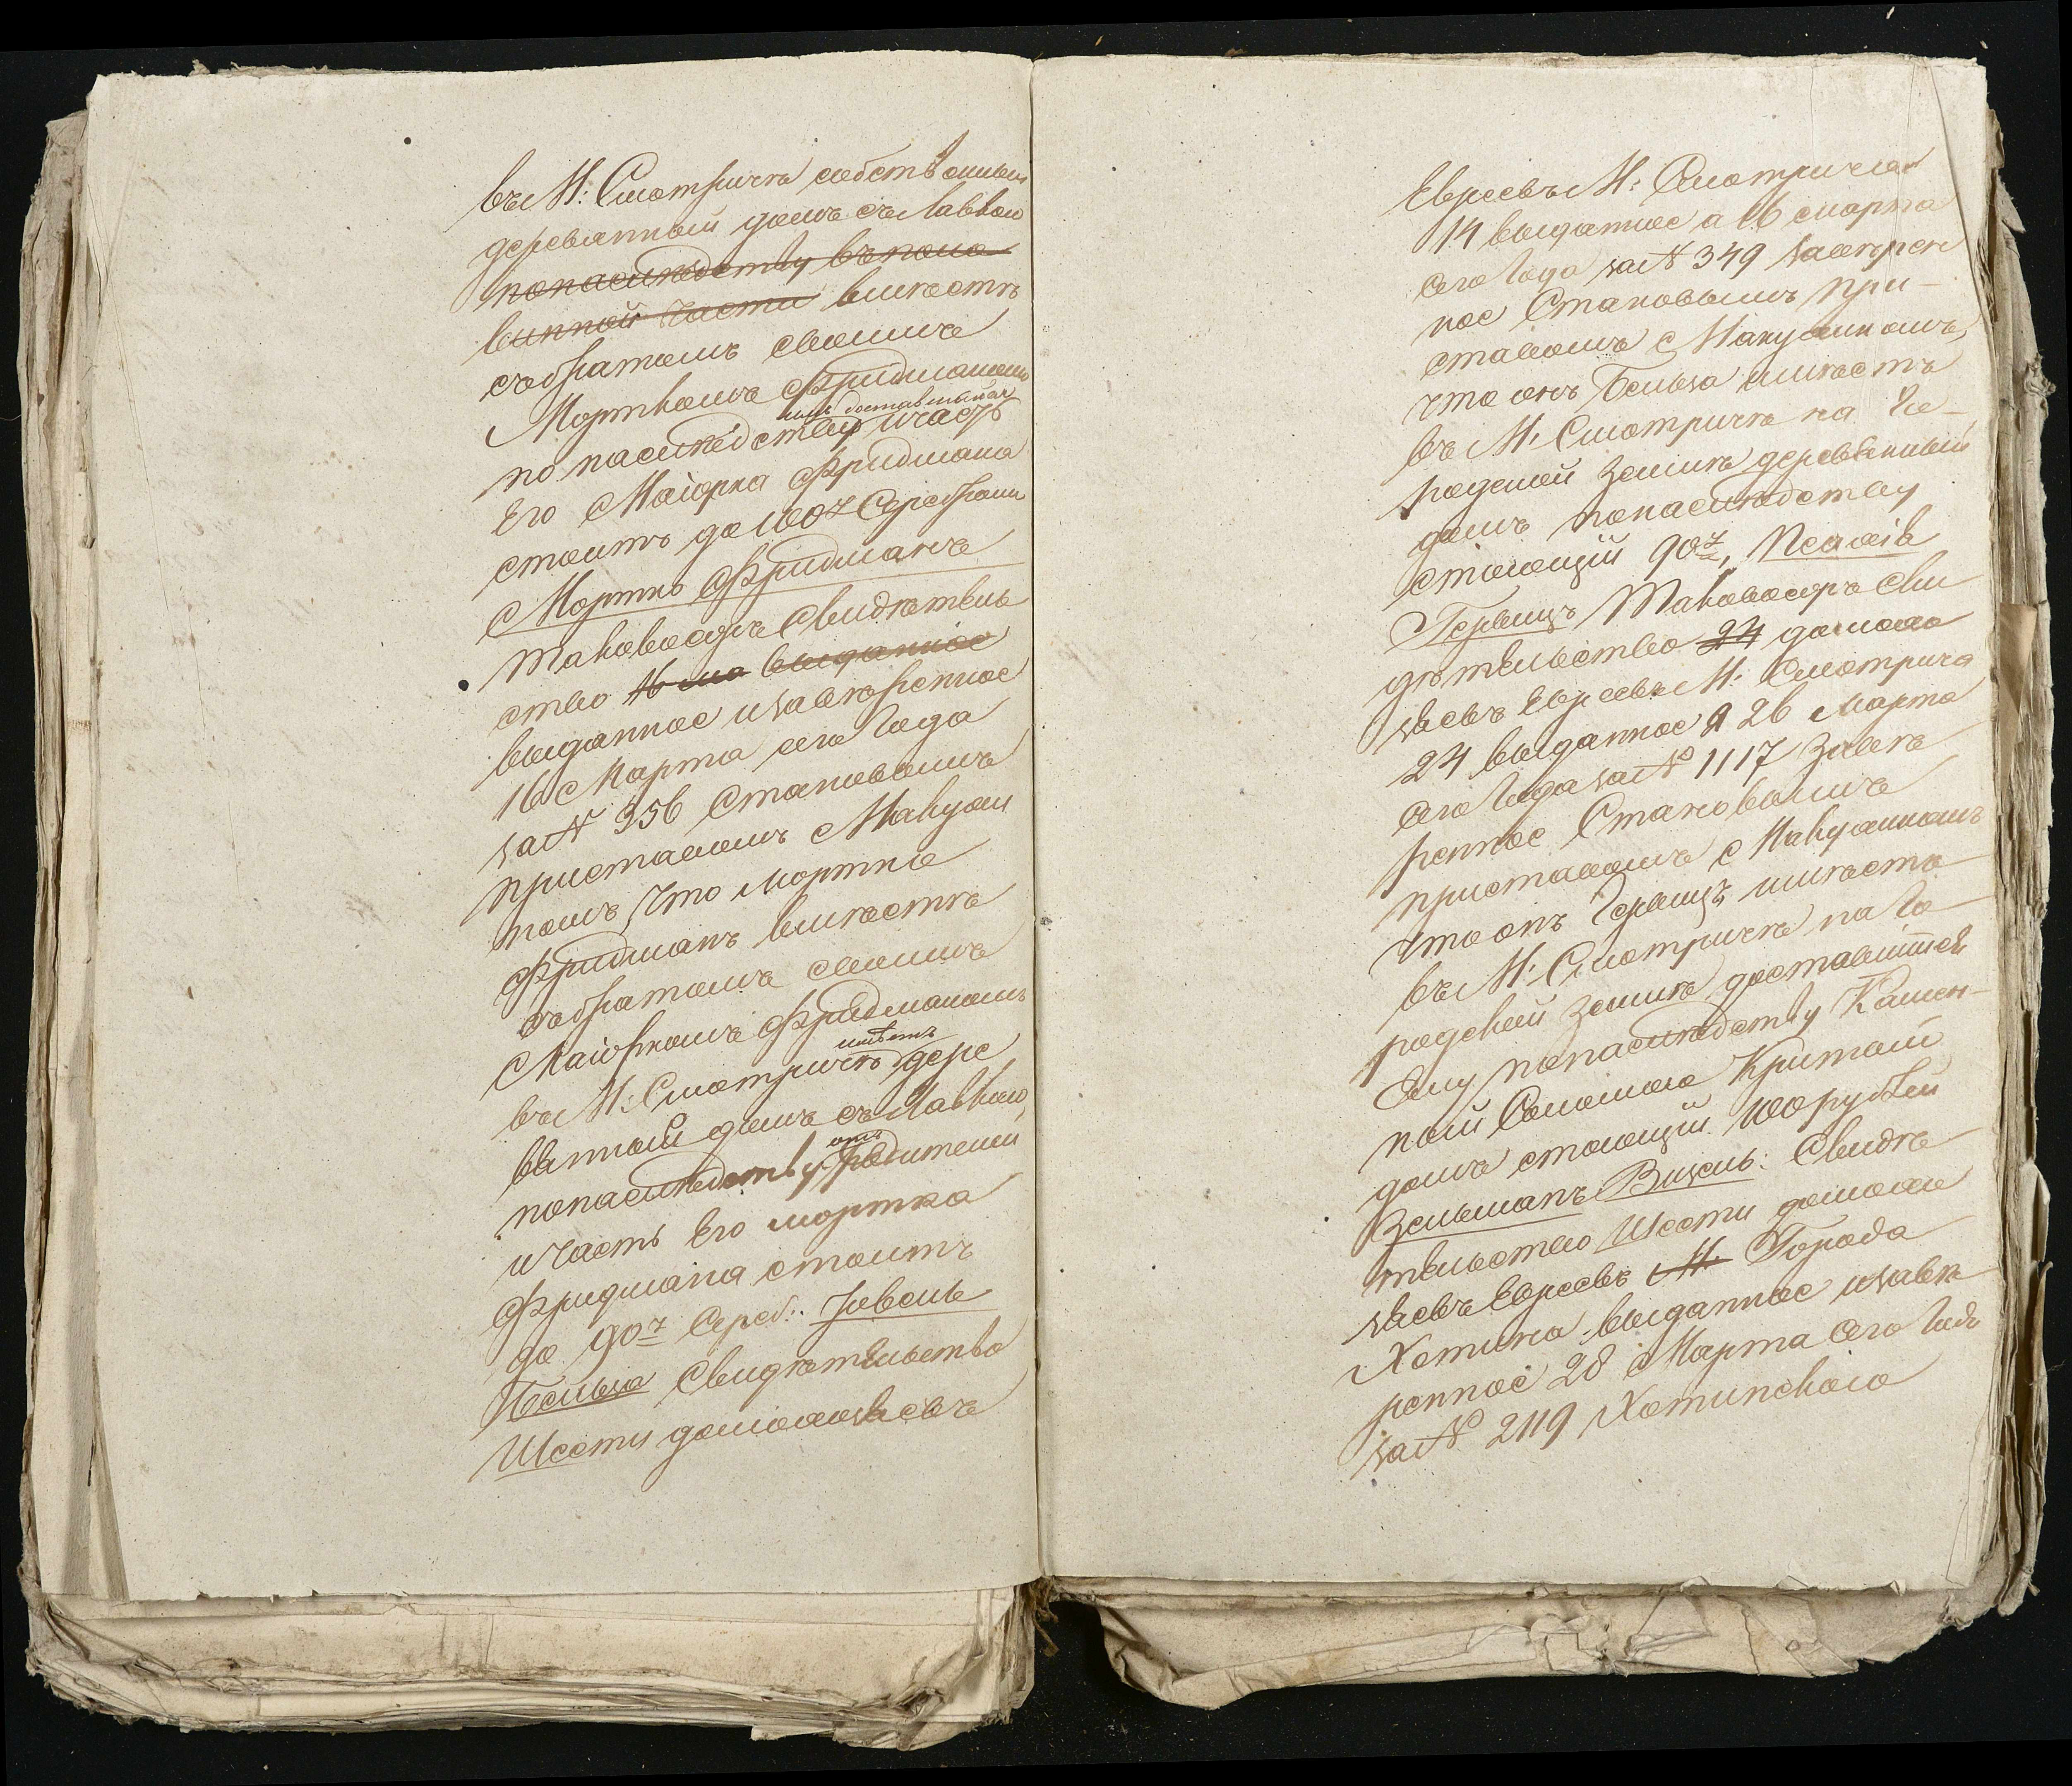 въ М: Смотричѣ собственный
деревянный домъ съ лавкою
по наслѣдству въ поло-
винной части вмѣстѣ
съ братомъ своимъ
Морткомъ Фридманомъ
имъ доставшійся
по наслѣдству и часть
Его Маіорка Фридмана
стоитъ до 100 р Серебромъ
Мортко Фридманъ
таковое свидѣтель
ство 16 ма выданное
выданное и завѣренное
16 Марта сего года
за № 356 Становымъ
приставомъ Макушин
помъ, что Мортко
Фридманъ вмѣстѣ
съ братомъ своимъ
Маіоркомъ Фридманомъ
имѣетъ
въ М: Смотричѣ дере
вянный домъ съ лавкою,
отъ
по наслѣдству родителей
и часть Его Мортка
Фридмана стоитъ
до 90 р Сереб: Іовель
Бельза Свидѣтельство
Шести домохозяевъ
Евреевъ М: Смотрича
14 выданное а 16 марта
сего года за № 349 завѣрен
ное Становымъ при-
ставомъ Макушиномъ,
что онъ Бельза имѣетъ
въ М: Смотричѣ на го-
родской землѣ деревянный
домъ по наслѣдству
стоющій 90 р,
Гервицъ таковое же сви
дѣтельство 24 домохо
зяевъ Евреевъ М: Смотрича
24 выданное а 26 Марта
сего года за № 1117 завѣ
ренное Становымъ
приставомъ Макушинымъ
что онъ Гервицъ имѣетъ
въ М: Смотричѣ на го
родской землѣ доставшійся
Ему по наслѣдству Камен-
ный Соломою Критый
домъ стоющій 100 рублей
Зельманъ Вицель: Свидѣ
тельство Шести домохо
зяевъ Евреевъ М. Города
Хотина выданное и завѣ
ренное 28 Марта сего года
за № 2119 Хотинскою